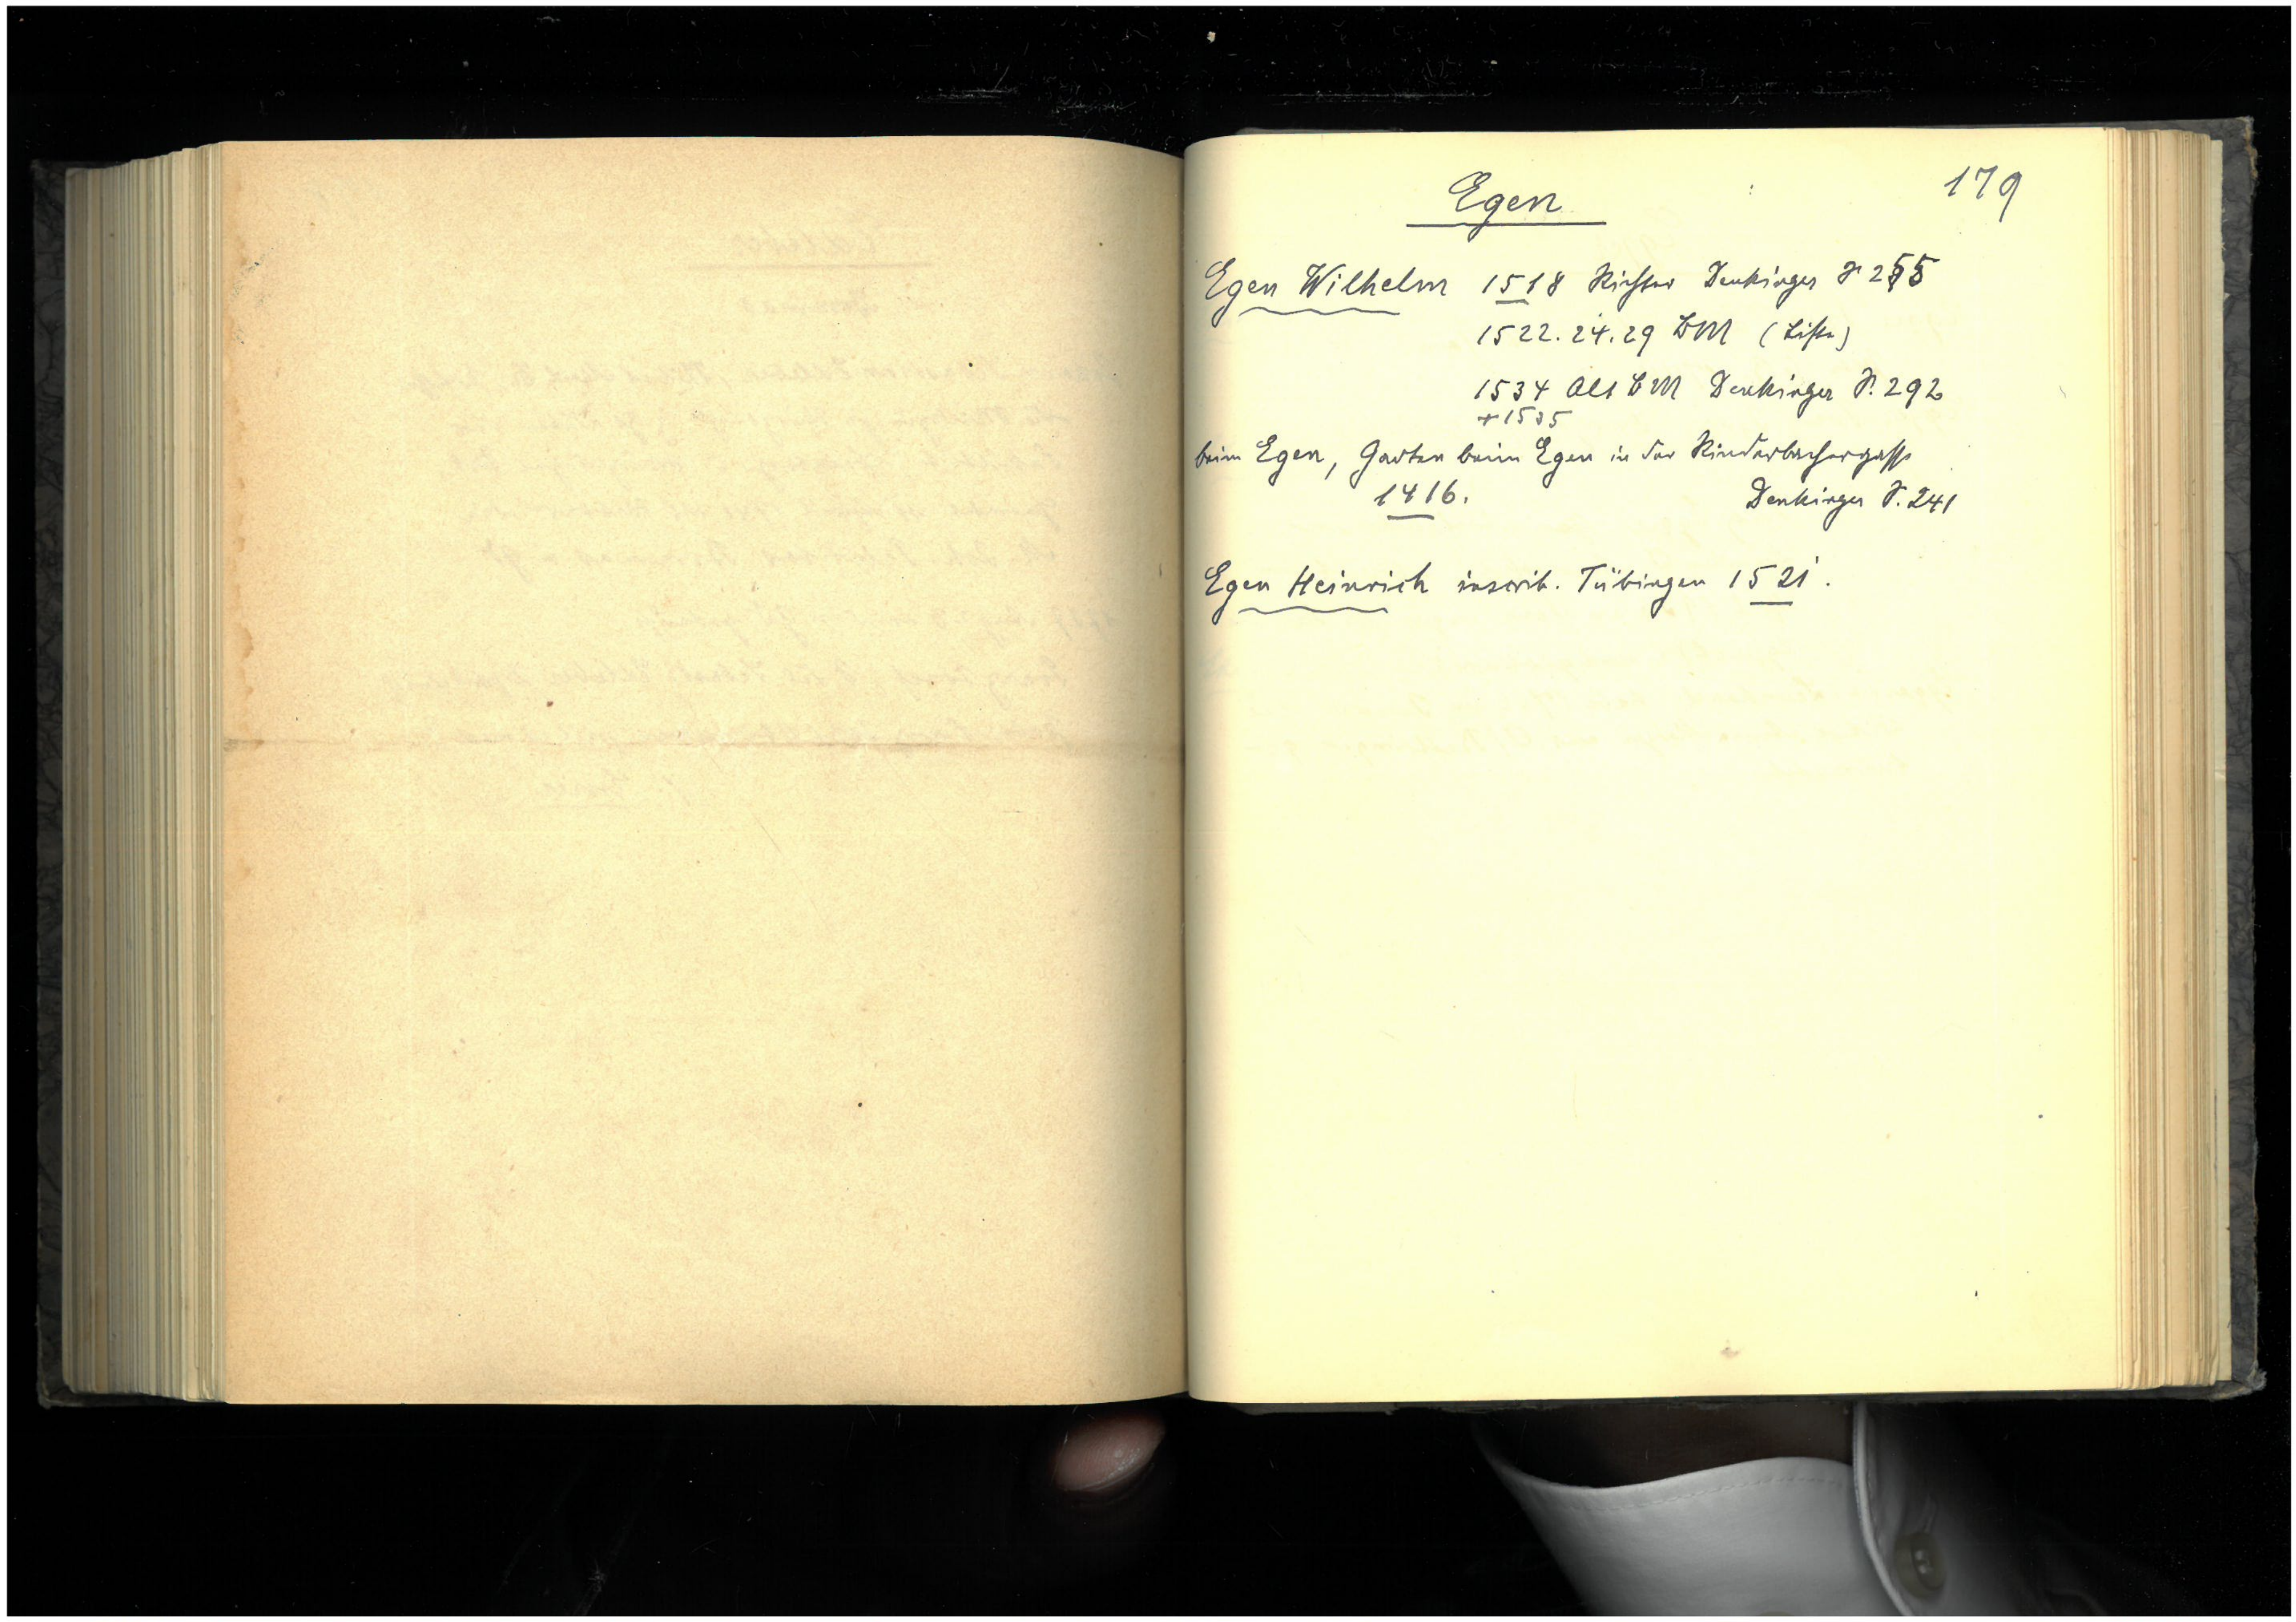 Egen
179
Egen Wilhelm 1518 Richter Denkinger S 255
1522.24.29 BM (Liste)
1534 Alt BM Denkinger S. 292
+1535
beim Egen, Garten beim Egen in der Rinderbachergasse
1416. Denkinger S. 241
Egen Heinrich inscrib. Tübingen 1521.